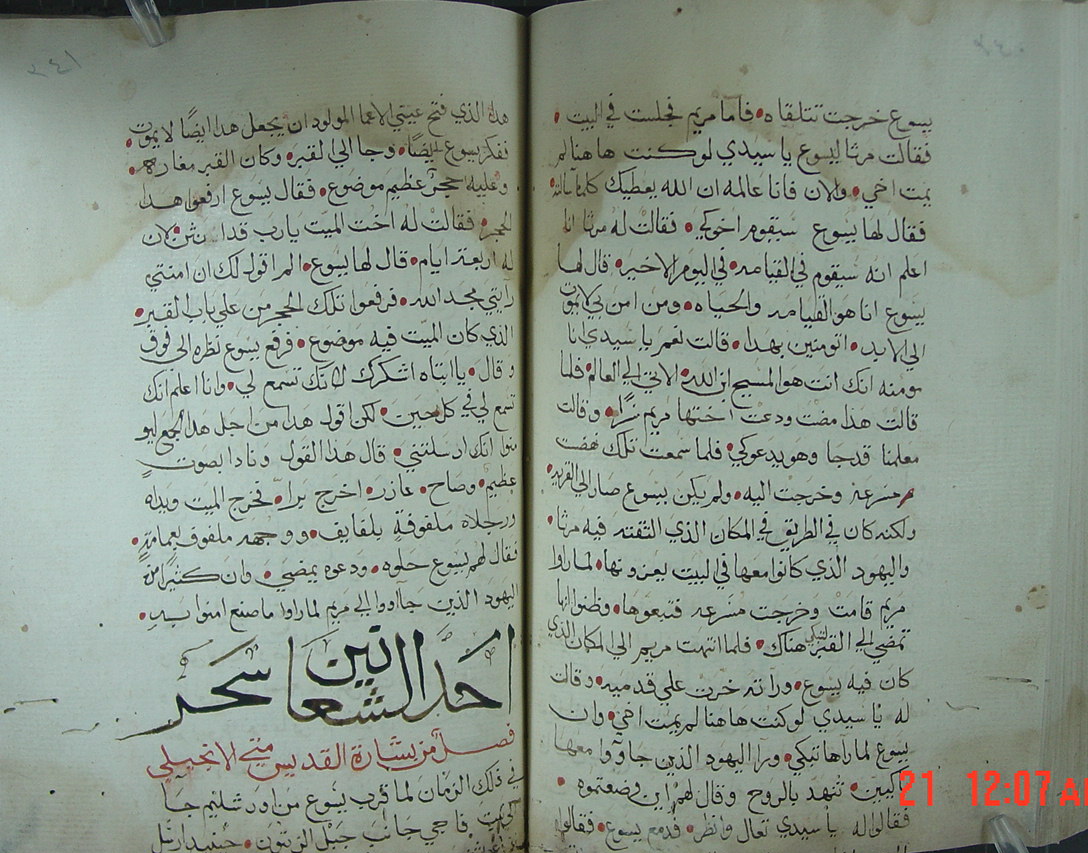 ٣٤٠
يسوع خرجت تتلقاه فاما مريم فجلست في البيت
فقالت مرثا ليسوع يا سيدي لو كنت هاهنا لم
يمت اخي والان فانا عالمه ان الله يعطيك كلما سالته
فقال لها يسوع سيقوم اخوكي فقالت له مرثا انا
اعلم انه سيقوم في القيامه في اليوم الاخير قال لها
يسوع انا هو القيامه والحياه ومن امن بي لا يموت
الي الابد اتومنين بهدا قالت نعم يا سيدي انا
مومنه انك انت هو المسيح ابن الله الاتي الي العالم فلما
قالت هذا مضت ودعت اختها مريم سرًا وقالت
معلمنا قد جا وهو يدعوكي فلما سمعت تلك نهضت
مسرعه وخرجت اليه ولم يكن يسوع صار الي القريه
ولكنه كان في الطريق في المكان الذي التقته فيه مرثا
واليهود الذي كانوا معها في البيت يعزونها لما راوا
مريم قامت وخرجت مسرعه فتبعوها وظنوا انها
تمضي الي القبر لتبكي هناك فلما انتهت مريم الي المكان الذي
كان فيه يسوع وراته خرت علي قدميه وقالت
له يا سيدي لو كنت هاهنا لم يمت اخي وان
يسوع لما راها تبكي ورا اليهود الذين جاووا معها
باكيين تنهد بالروح وقال لهم اين وضعتموه
فقالوا له يا سيدي تعال وانظر فدمع يسوع فقالوا
٣٤١
هذا الذي فتح عيني الاعما المولود ان يجعل هدا ايضًا لا يموت
فتفكر يسوع ايضًا وجا الي القبر وكان القبر مغاره
وعليه حجر عظيم موضوع فقال يسوع ارفعوا هدا
الحجر فقالت له اخت الميت يا رب قد انتن لان
له اربعة ايام قال لها يسوع الم اقول لك ان امنتي
رايتي مجد الله فرفعوا تلك الحجر من علي باب القبر
الذي كان الميت فيه موضوع فرفع يسوع نظره الي فوق
وقال يا ابتاه اشكرك لانك تسمع لي وانا اعلم انك
تسمع لي في كل حين لكن اقول هدا من اجل هدا الجمع ليو
منوا انك ارسلتني قال هذا القول ونادا بصوت
عظيم وصاح عازر اخرج برا فخرج الميت ويداه
ورجلاه ملفوفة بلفايف ووجهه ملفوف بعمامة
فقال لهم يسوع حلوه ودعوه يمضي وان كثيرًا من
اليهود الذين جاووا الي مريم لما راوا ما صنع امنوا به
احد الشعانين سحر
فصل من بشارة القديس متي الانجيلي
في ذلك الزمان لما قرب يسوع من اورشليم جا
الي بيت فاجي جانب جبل الزيتون حينيد ارسل
21 12:07 AM